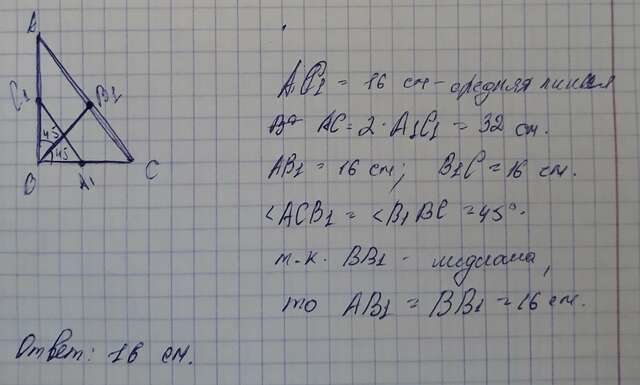 A
C1
B1
45
45
B
A1
C
AC1 = 16 см - средняя линия
AC = 2 · A1C1 = 32 см.
AB1 = 16 см; B1C = 16 см.
<ACB1 = <B1BC = 45°.
т.к. BB1 - медиана,
то AB1 = BB1 = 16 см.
Ответ: 16 см.